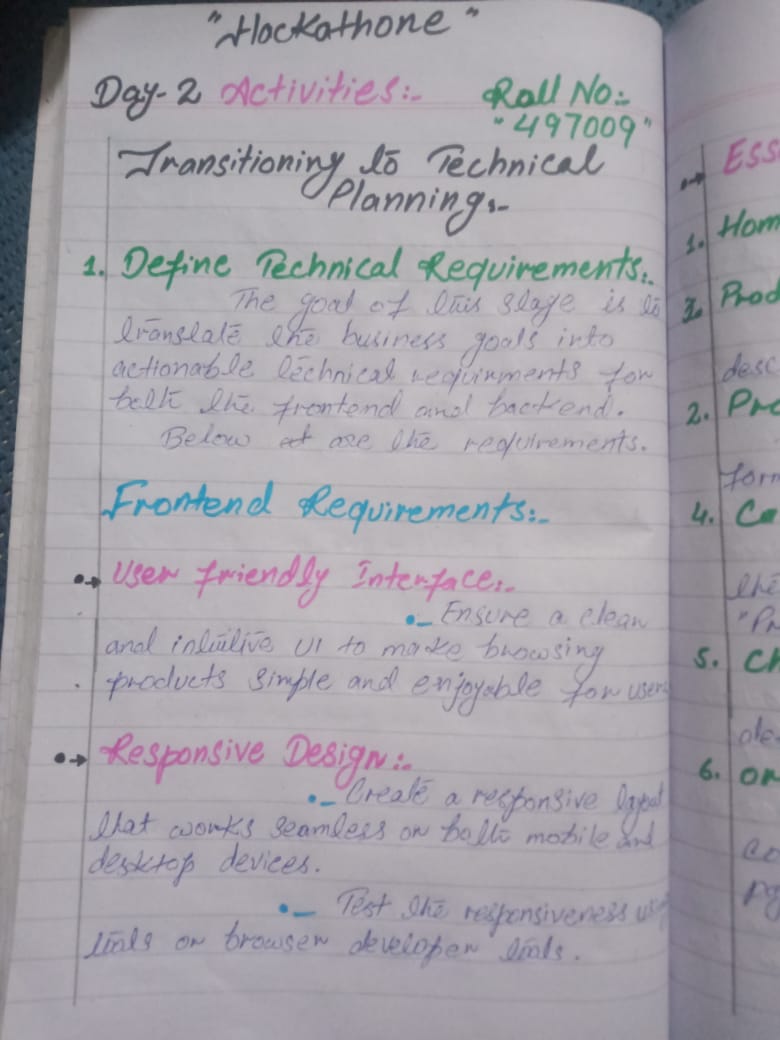 "Hockathone"
Day-2 Activities:-
Roll No:-
"497009"
Transitioning to Technical
Planning:-
1. Define Technical Requirements:-
The goal of this stage is to
translate the business goals into
actionable technical requirments for
both the frontend and backend.
Below are the requirements.
Frontend Requirements:-
User friendly Interface:-
Ensure a clean
and intuitive UI to make browsing
products simple and enjoyable for users
Responsive Design:-
Create a responsive layout
that works seamless on both mobile and
desktop devices.
Test the responsiveness using
tools or browser developer tools.
Ess
1. Hom
3. Prod
desc
2. Pro
form
4. Ca
the
"Pr
5. Ch
6. or
co
pg